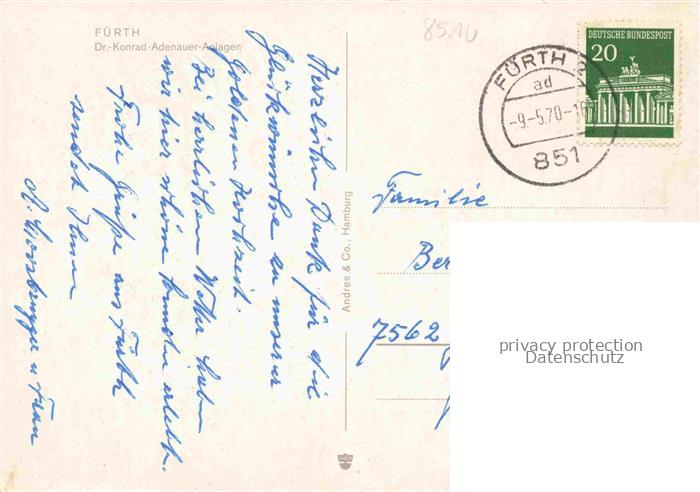 FÜRTH
Dr.-Konrad-Adenauer-Anlagen
8510
DEUTSCHE BUNDESPOST
20
FÜRTH 2
ad
-9.-5.70-
851
Herzlichen Dank für die
Glückwünsche zu unserer
Goldenen Hochzeit.
Bei herrlichem Wetter haben
wir hier schöne Stunden erlebt.
Frohe Grüße aus Fürth
sendet Ihnen
u. Frau
Andres & Co., Hamburg
Familie
Ber
7562
privacy protection
Datenschutz